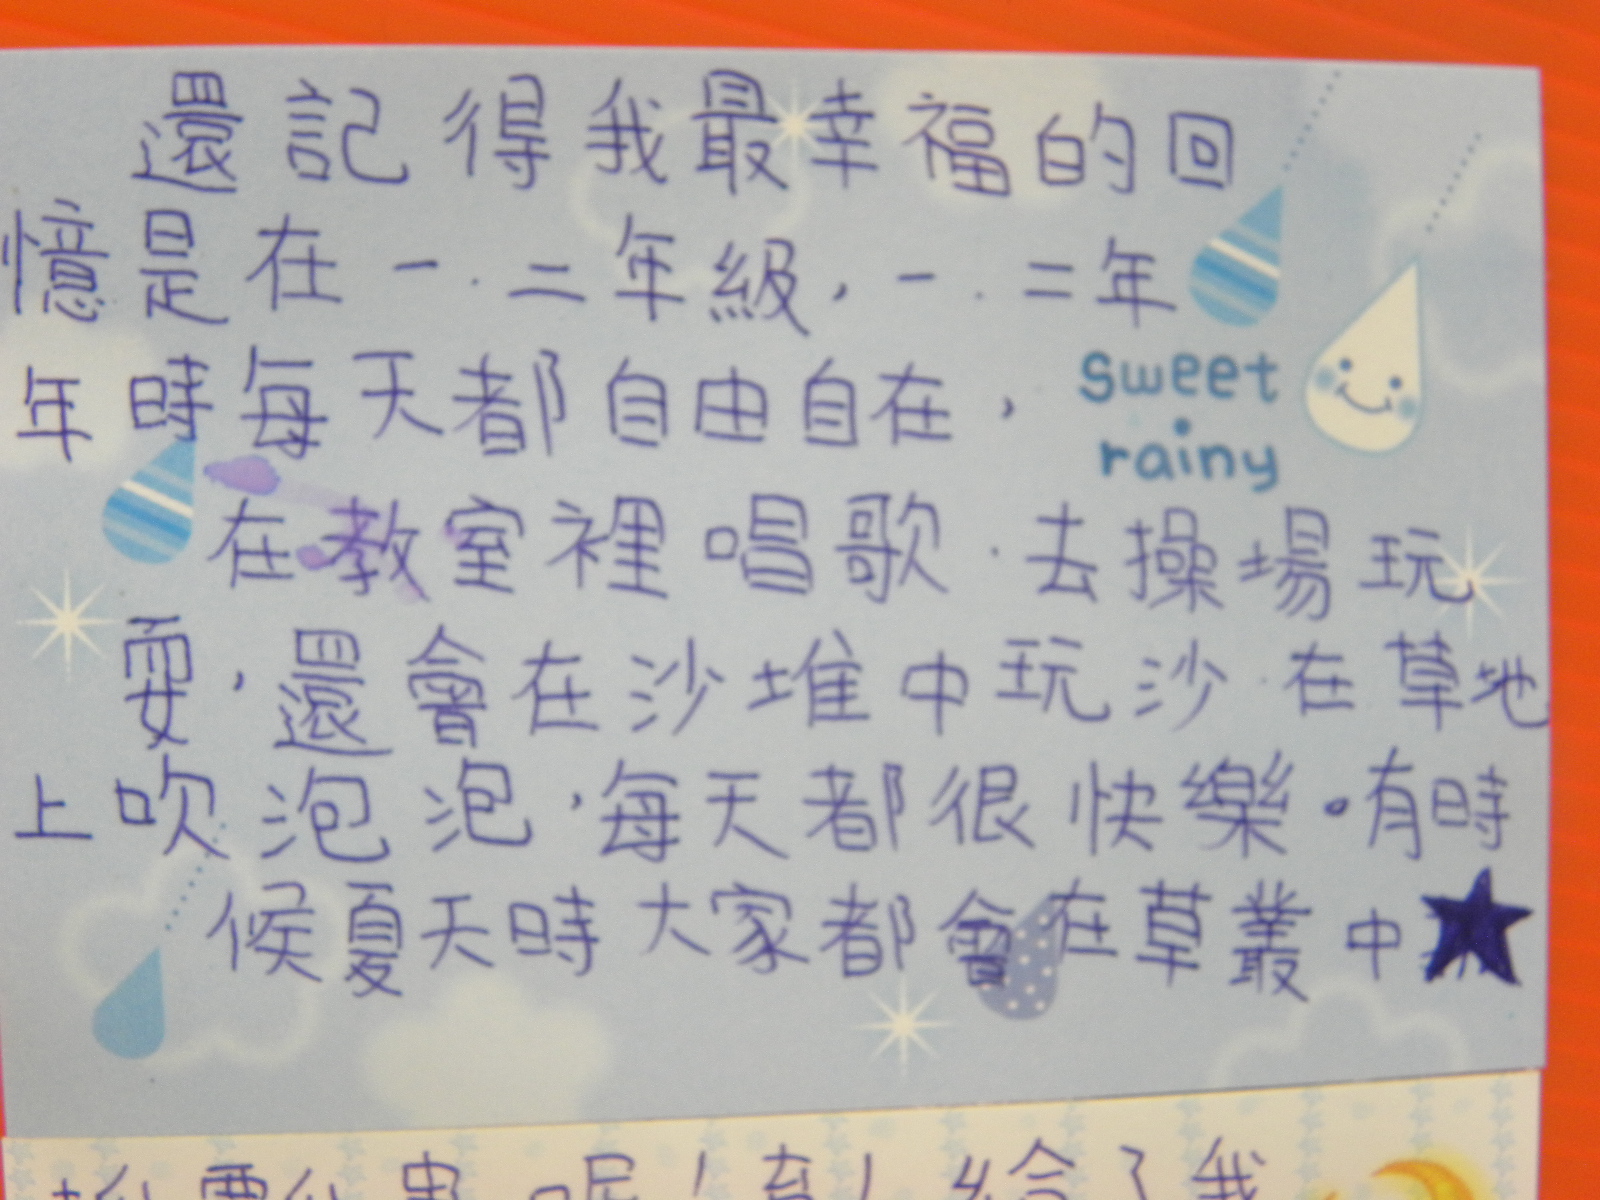 還記得我最幸福的回
憶是在一.二年級,一.二年
年時每天都自由自在,
sweet
rainy
在教室裡唱歌.去操場玩
耍,還會在沙堆中玩沙.在草地
上吹泡泡,每天都很快樂.有時
候夏天時大家都會在草叢中
蟲呢!有人給了我